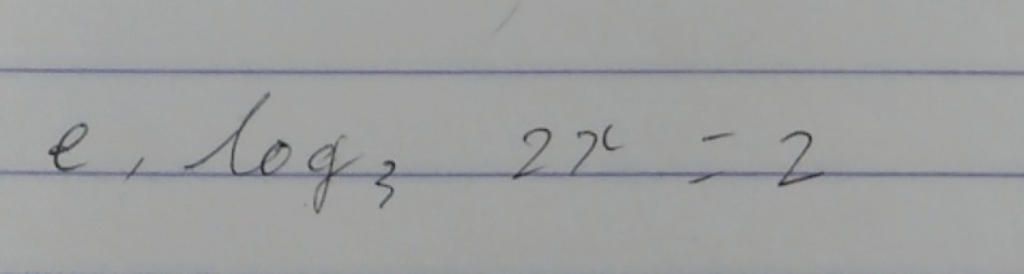 e, log₃ 2x = 2